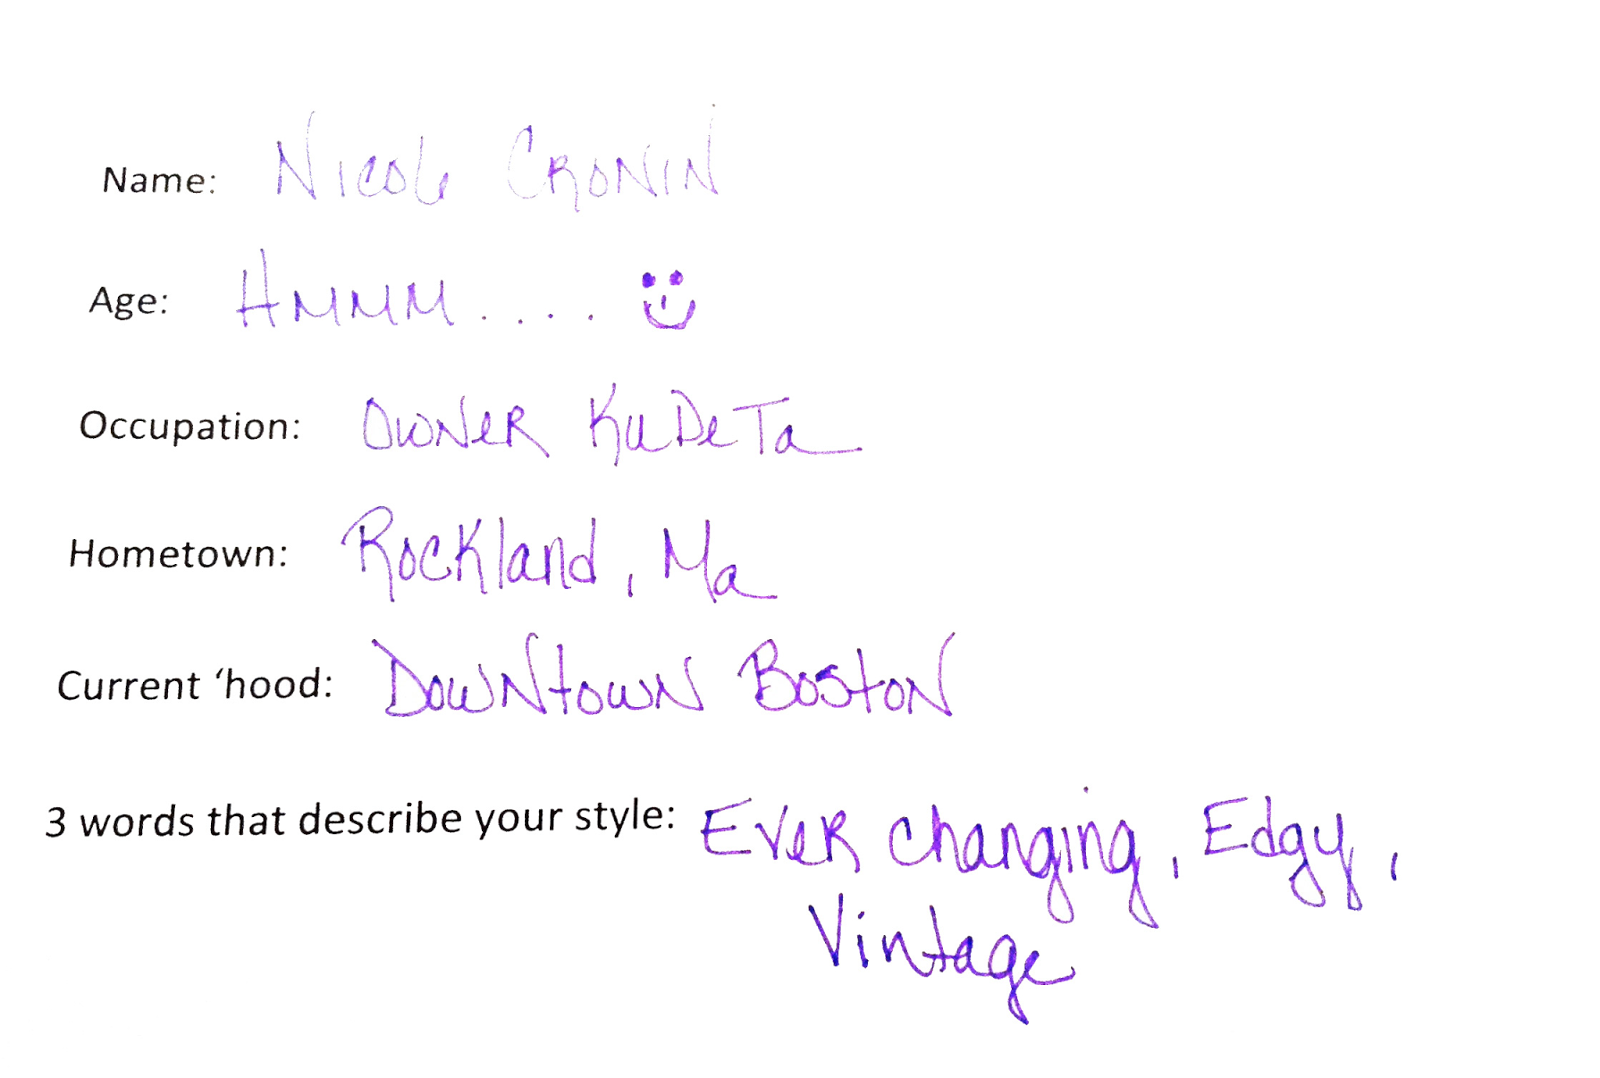 Name: Nicole Cronin
Age: Hmmm....
Occupation: Owner KuDeTa
Hometown: Rockland, Ma
Current ‘hood: Downtown Boston
3 words that describe your style: Ever changing, Edgy,
Vintage